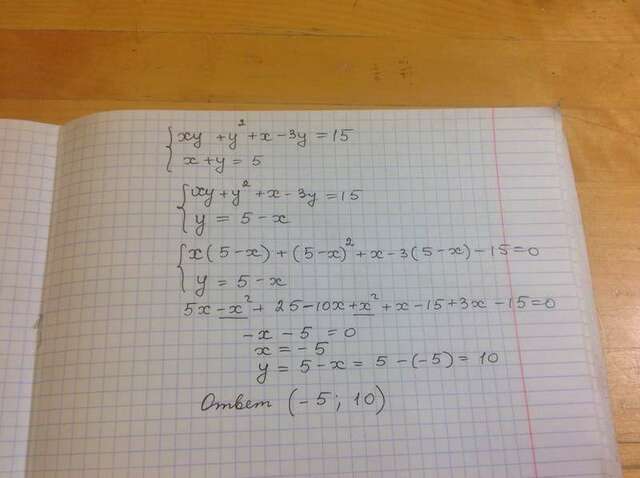 xy + y² + x - 3y = 15
x + y = 5
xy + y² + x - 3y = 15
y = 5 - x
x(5-x) + (5-x)² + x - 3(5-x) - 15 = 0
y = 5 - x
5x - x² + 25 - 10x + x² + x - 15 + 3x - 15 = 0
-x - 5 = 0
x = -5
y = 5 - x = 5 - (-5) = 10
Ответ (-5; 10)